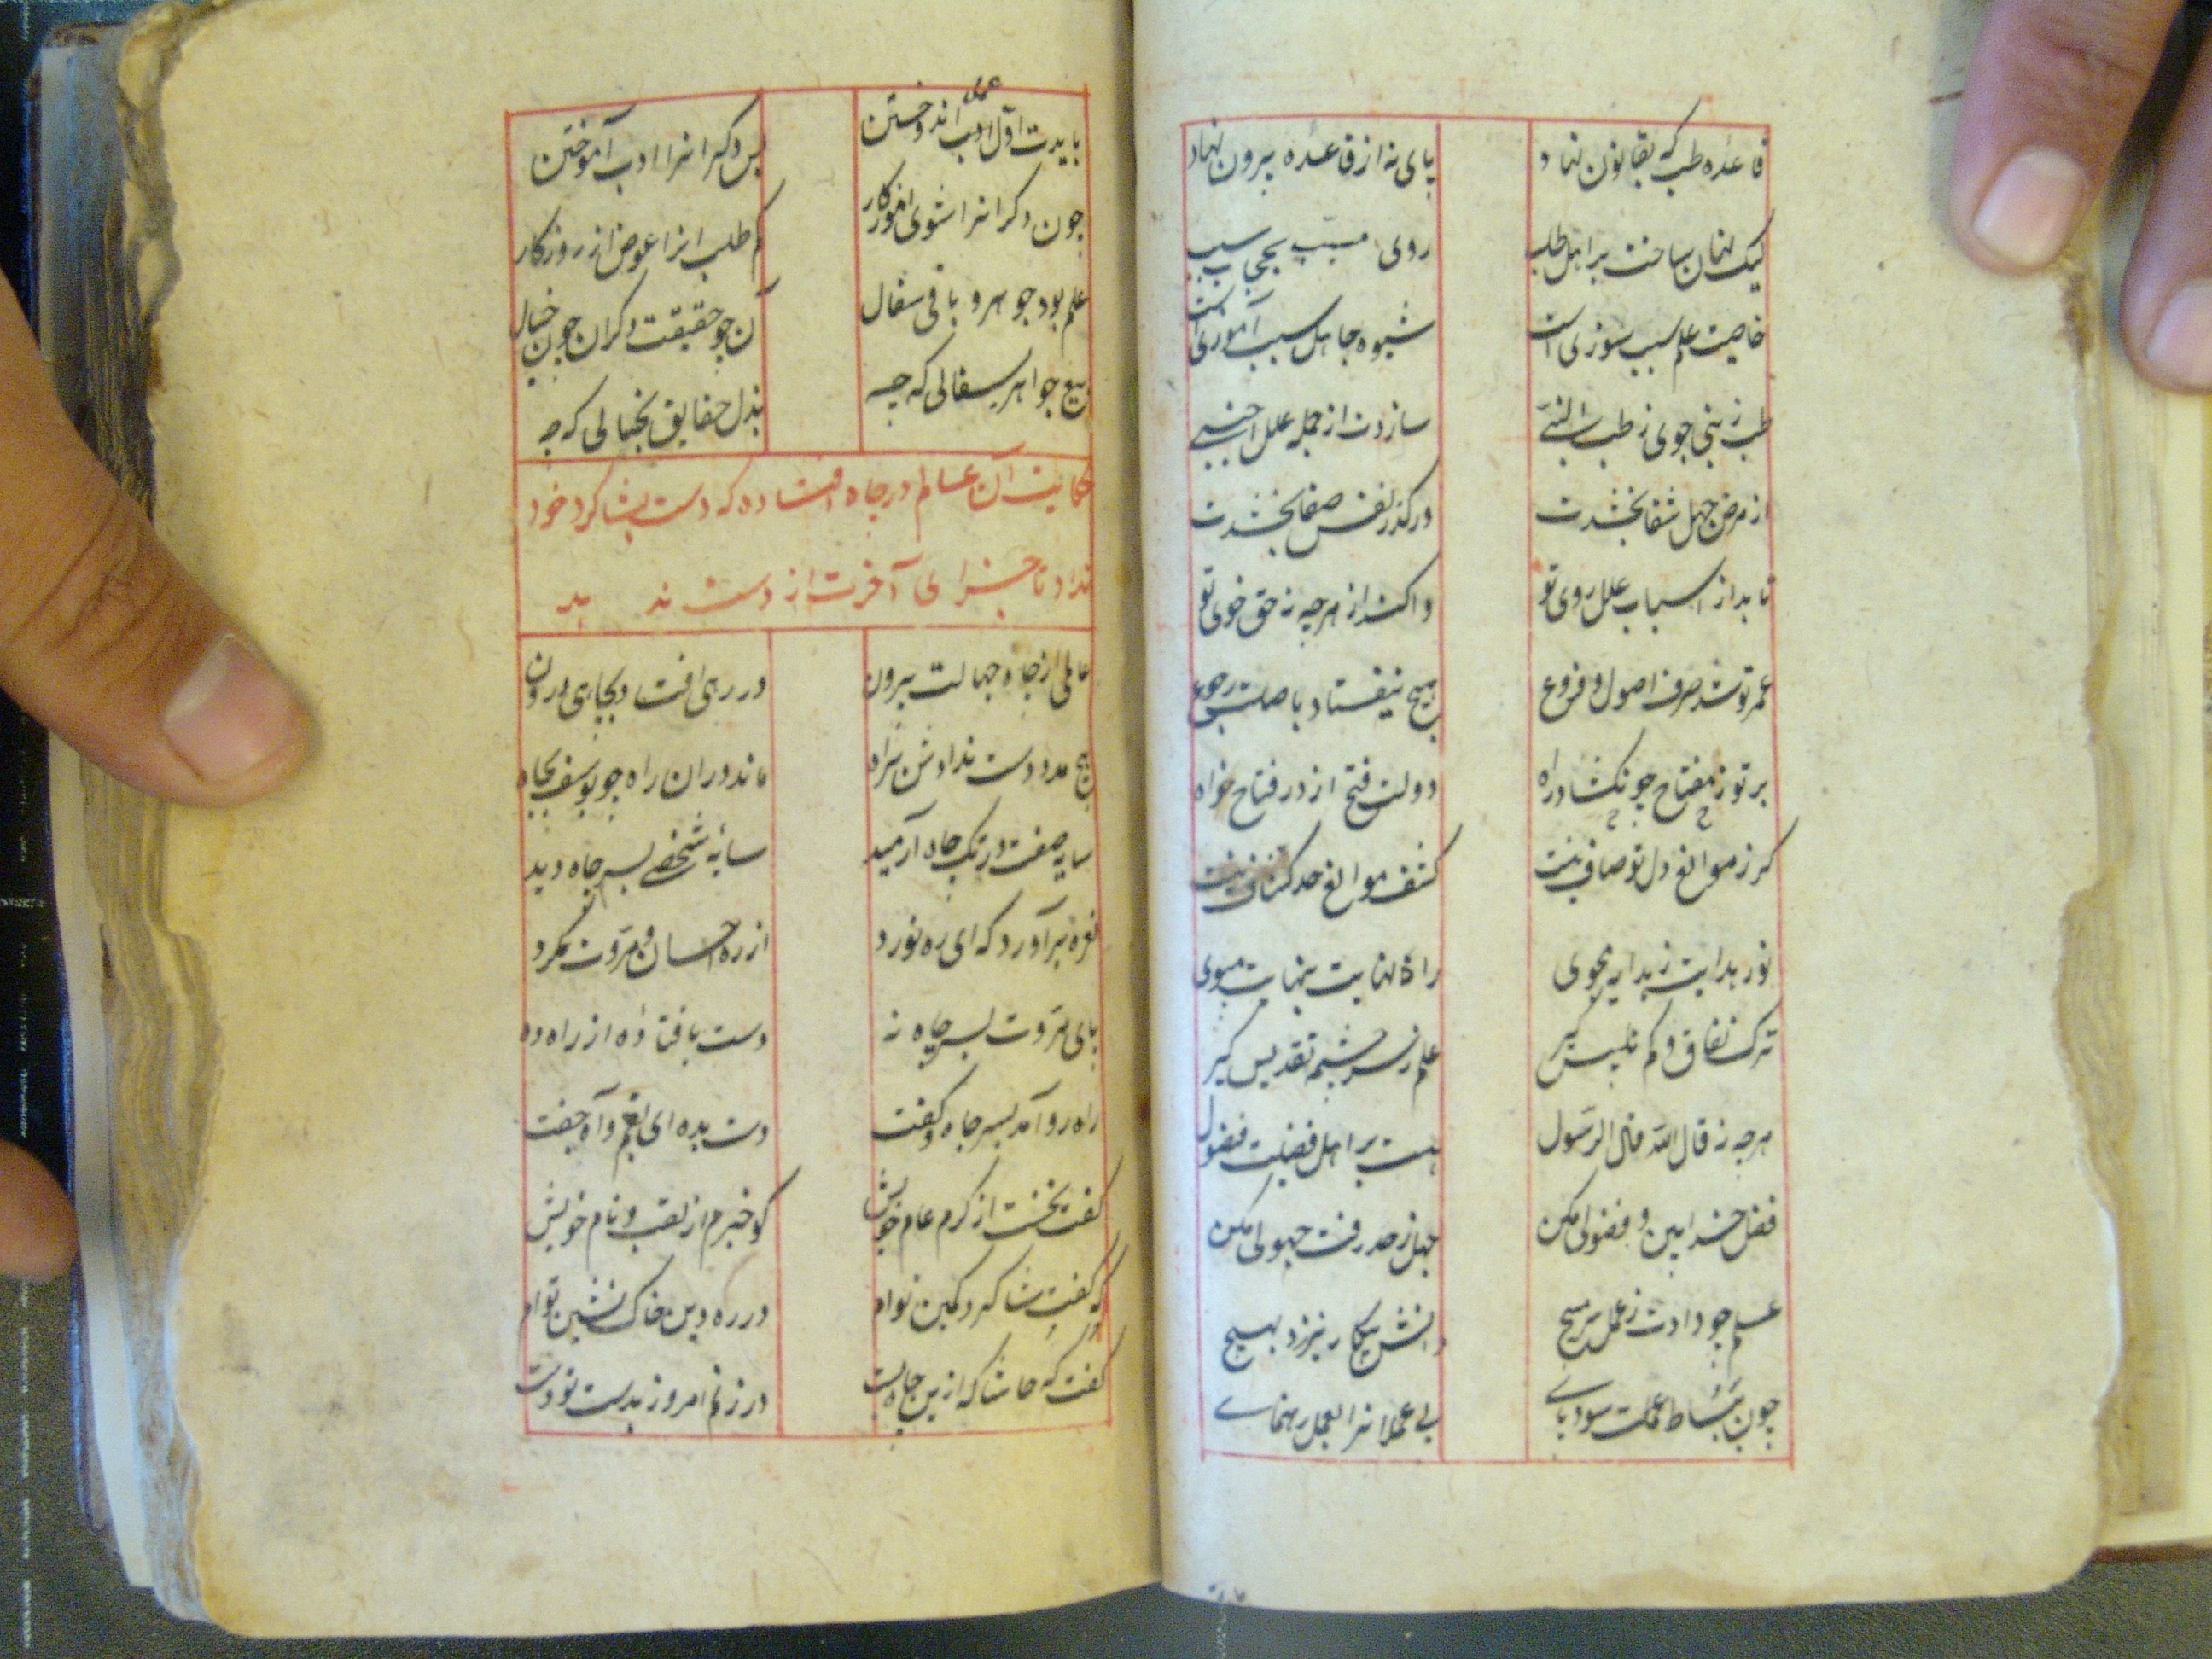 قاعده طب که بقانون نهاد پای نه از قاعده بیرون نهاد
لیک نهان ساخت بر اهل طلب روی مسبب بحجب سبب
خاصیت علم سبب سوزی است شیوه جاهل سبب آموزی است
طب ز نبی جوی ز طب النبی سازدت از جمله علل اجنبی
از مرض جهل شفا بخشدت در کدر نفس صفا بخشدت
تابد از اسباب علل روی تو واکند از هرچه نه حق خوی تو
عمر تو شد صرف اصول و فروع هیچ نیفتاد باصلت رجوع
بر تو ز مفتاح چو نکشاد راه دولت فتح از در فتاح خواه
کر ز موانع دل تو صاف نیست کشف موانع حد کشاف نیست
نور هدایت ز هدایه مجوی راه نهایت بنهایت مپوی
ترک نفاق و کم تلبیس کیر علم ز سرچشمه تقدیس کیر
هرچه نه قال الله قال الرسول هست بر اهل فضیلت فضول
فضل خدا بین و فضولی مکن جهل ز حد رفت جهولی مکن
علم چو دادت ز عمل سر مپیچ دانش بیکار نیرزد بهیچ
چون بنشاط عملت سود پای بی عملانرا بعمل رهنمای
بایدت اول ادب اندوختن پس دکرانرا ادب آموختن
عمل
چون دکرانرا شوی آموزکار کم طلب انرا عوض از روزکار
علم بود جوهر و باقی سفال آن چو حقیقت دکران چون خیال
بیع جواهر بسفالی که چه بذل حقایق بخیالی که چه
حکایت آن عالم در چاه افتاده که دست بشاکرد خود
نداد تا جزای آخرت از دست ندهد
عالمی از چاه جهالت برون در رهی افتاد بچاهی درون
هیچ مدد دست ندادش ز راه ماند در ان راه چو یوسف بچاه
سایه صفت در تک چاه آرمید سایه شخصی بسر چاه دید
نعره برآورد که ای ره نورد از ره احسان و مروت مکرد
پای مروت بسر چاه نه دست بافتاده از راه ده
راه رو آمد بسر چاه و کفت دست بده ای بغم و آه جفت
کفت نخست از کرم عام خویش کو خبرم از لقب و نام خویش
کفت که شاکرد کمین توام در ره دین خاک نشین توام
کفت که حاشا که ازین چاه پست در زنم امروز بدست تو دست